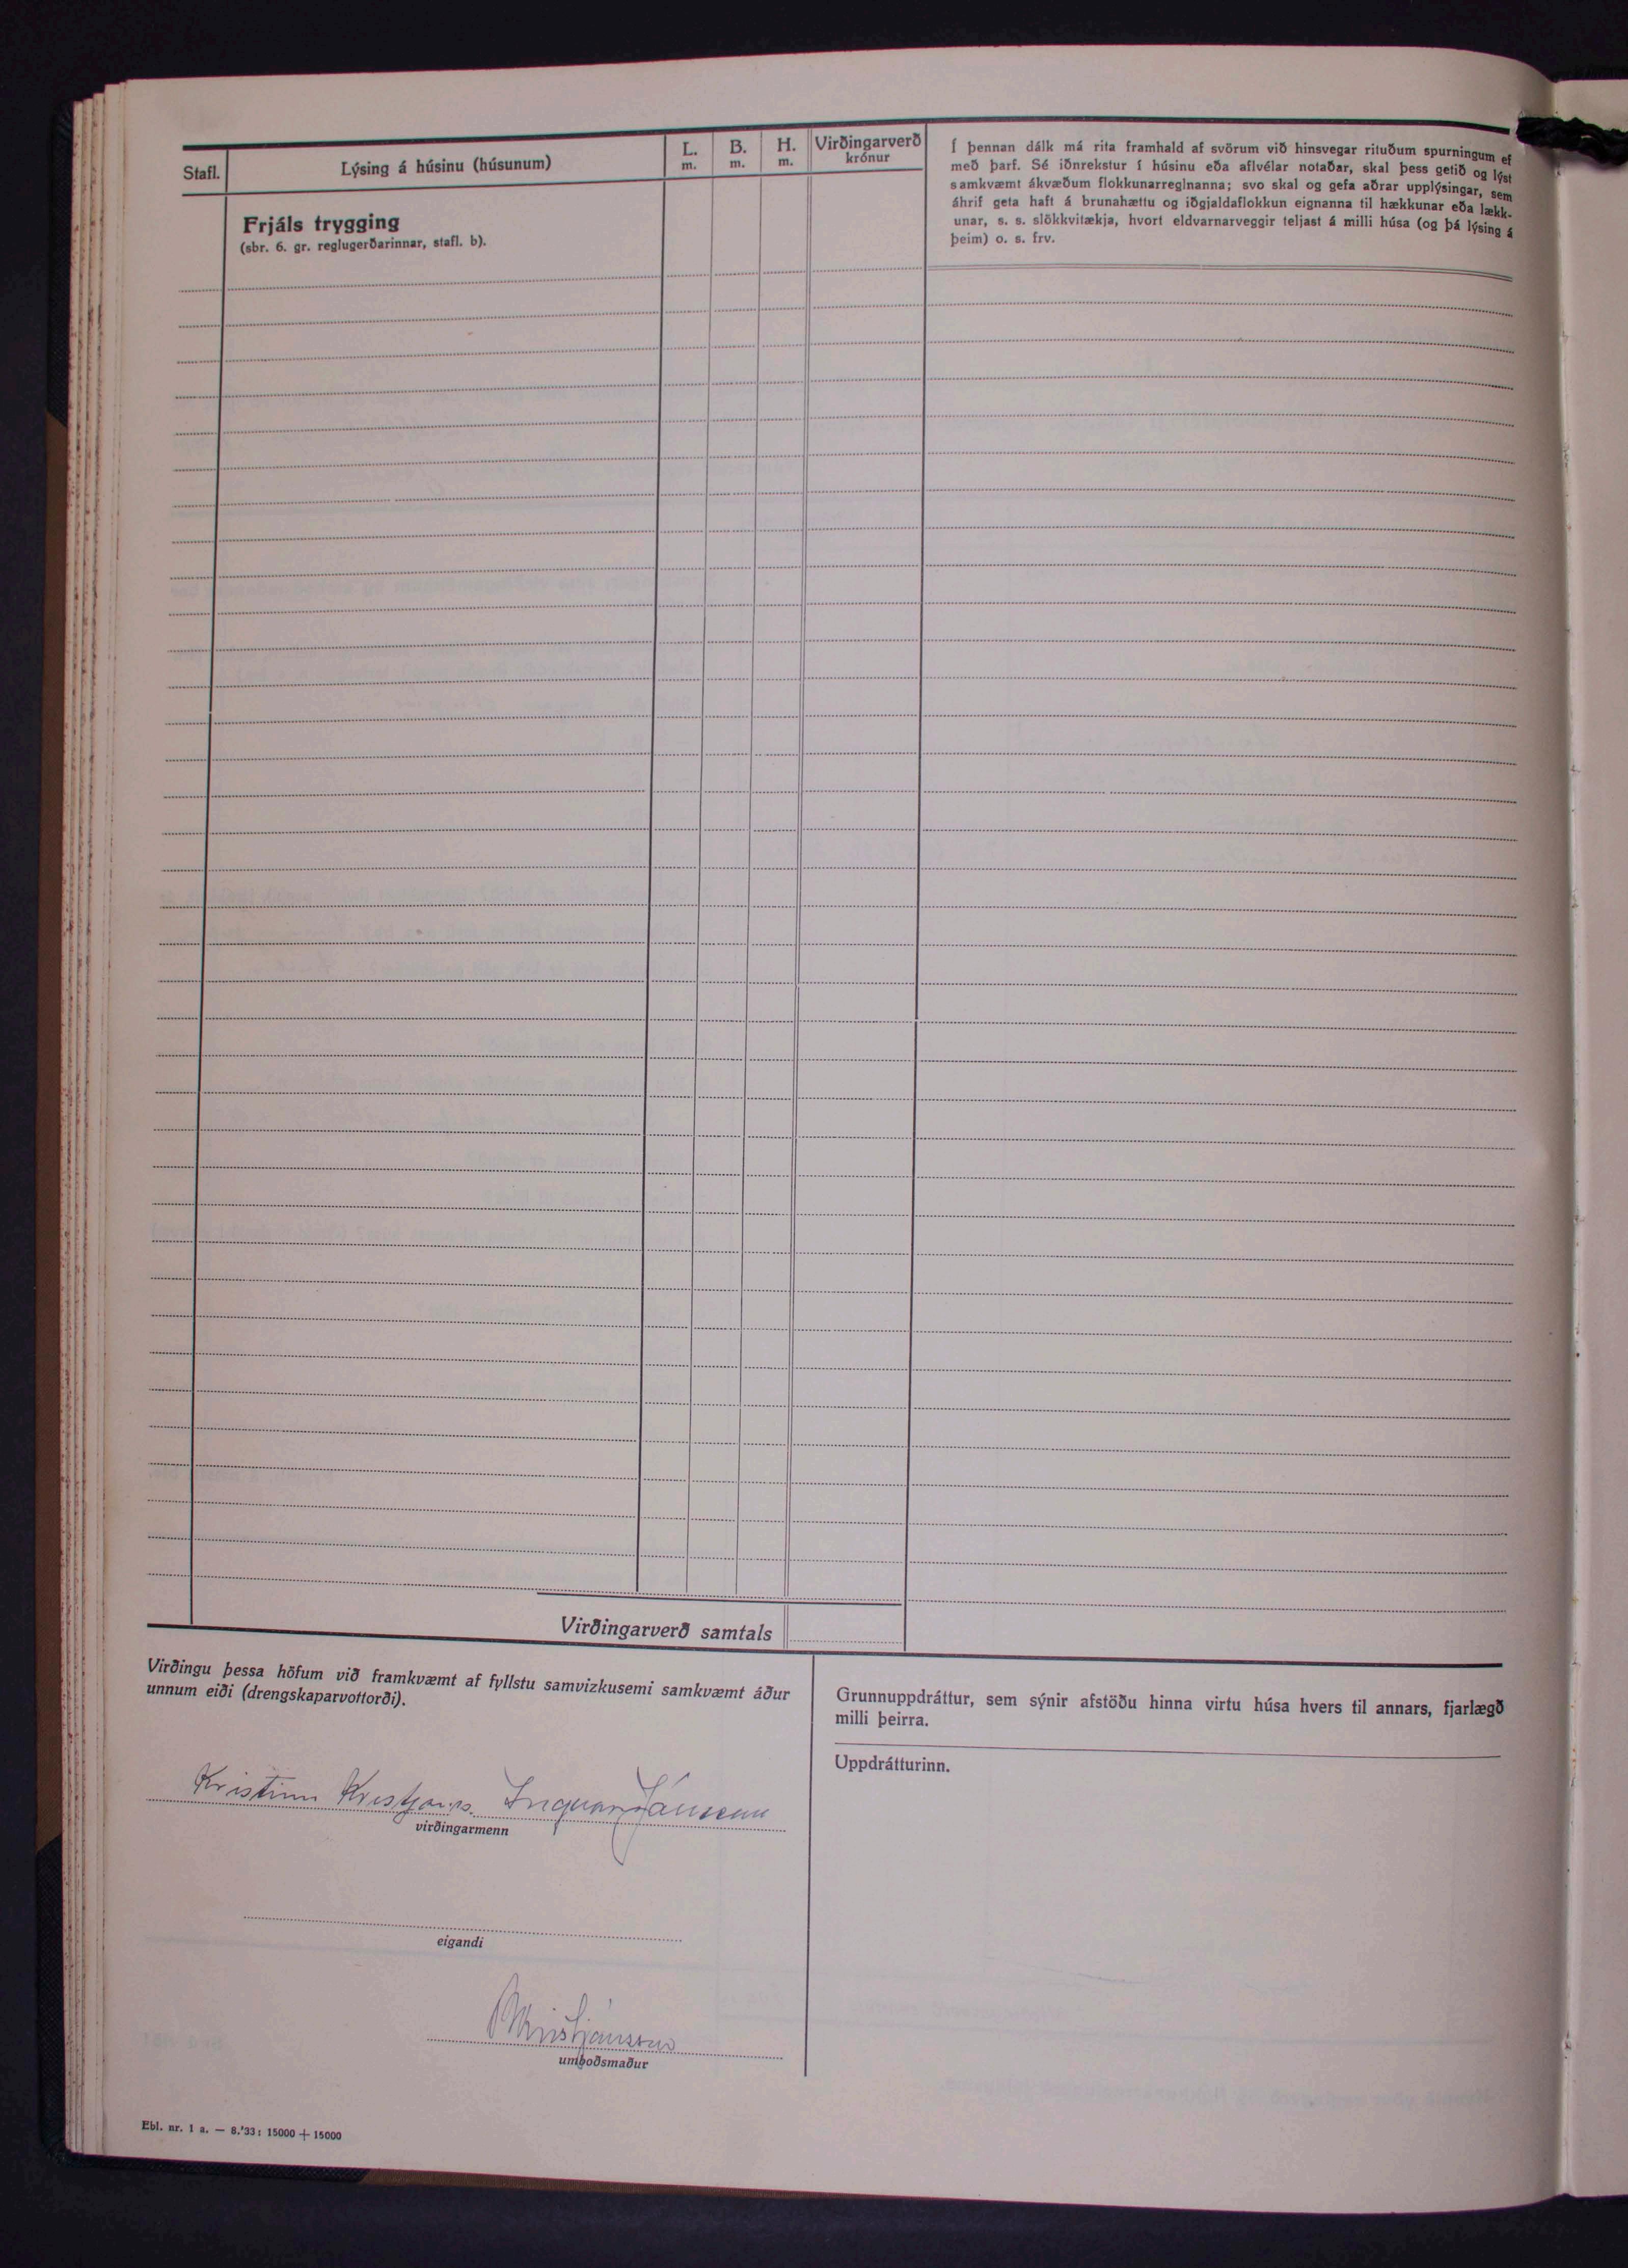 Stafl.
Lýsing á húsinu (húsunum)
L.
m.
B.
m.
H.
m.
Virðingarverð
krónur
Frjáls trygging
(sbr. 6. gr. reglugerðarinnar, stafl. b).
Í þennan dálk má rita framhald af svörum við hinsvegar rituðum spurningum ef
með þarf. Sé iðnrekstur í húsinu eða aflvélar notaðar, skal þess getið og lýst
samkvæmt ákvæðum flokkunarreglnanna; svo skal og gefa aðrar upplýsingar, sem
áhrif geta haft á brunahættu og iðgjaldaflokkun eignanna til hækkunar eða lækk-
unar, s. s. slökkvitækja, hvort eldvarnarveggir teljast á milli húsa (og þá lýsing á
þeim) o. s. frv.
Virðingarverð samtals
Virðingu þessa höfum við framkvæmt af fyllstu samvizkusemi samkvæmt áður
unnum eiði (drengskaparvottorði).
Kristinn Kristjáns. Ingvar Jónsson
virðingarmenn
eigandi
Kristjánsson
umboðsmaður
Grunnuppdráttur, sem sýnir afstöðu hinna virtu húsa hvers til annars, fjarlægð
milli þeirra.
Uppdrátturinn.
Ebl. nr. 1 a. — 8.'33: 15000 + 15000